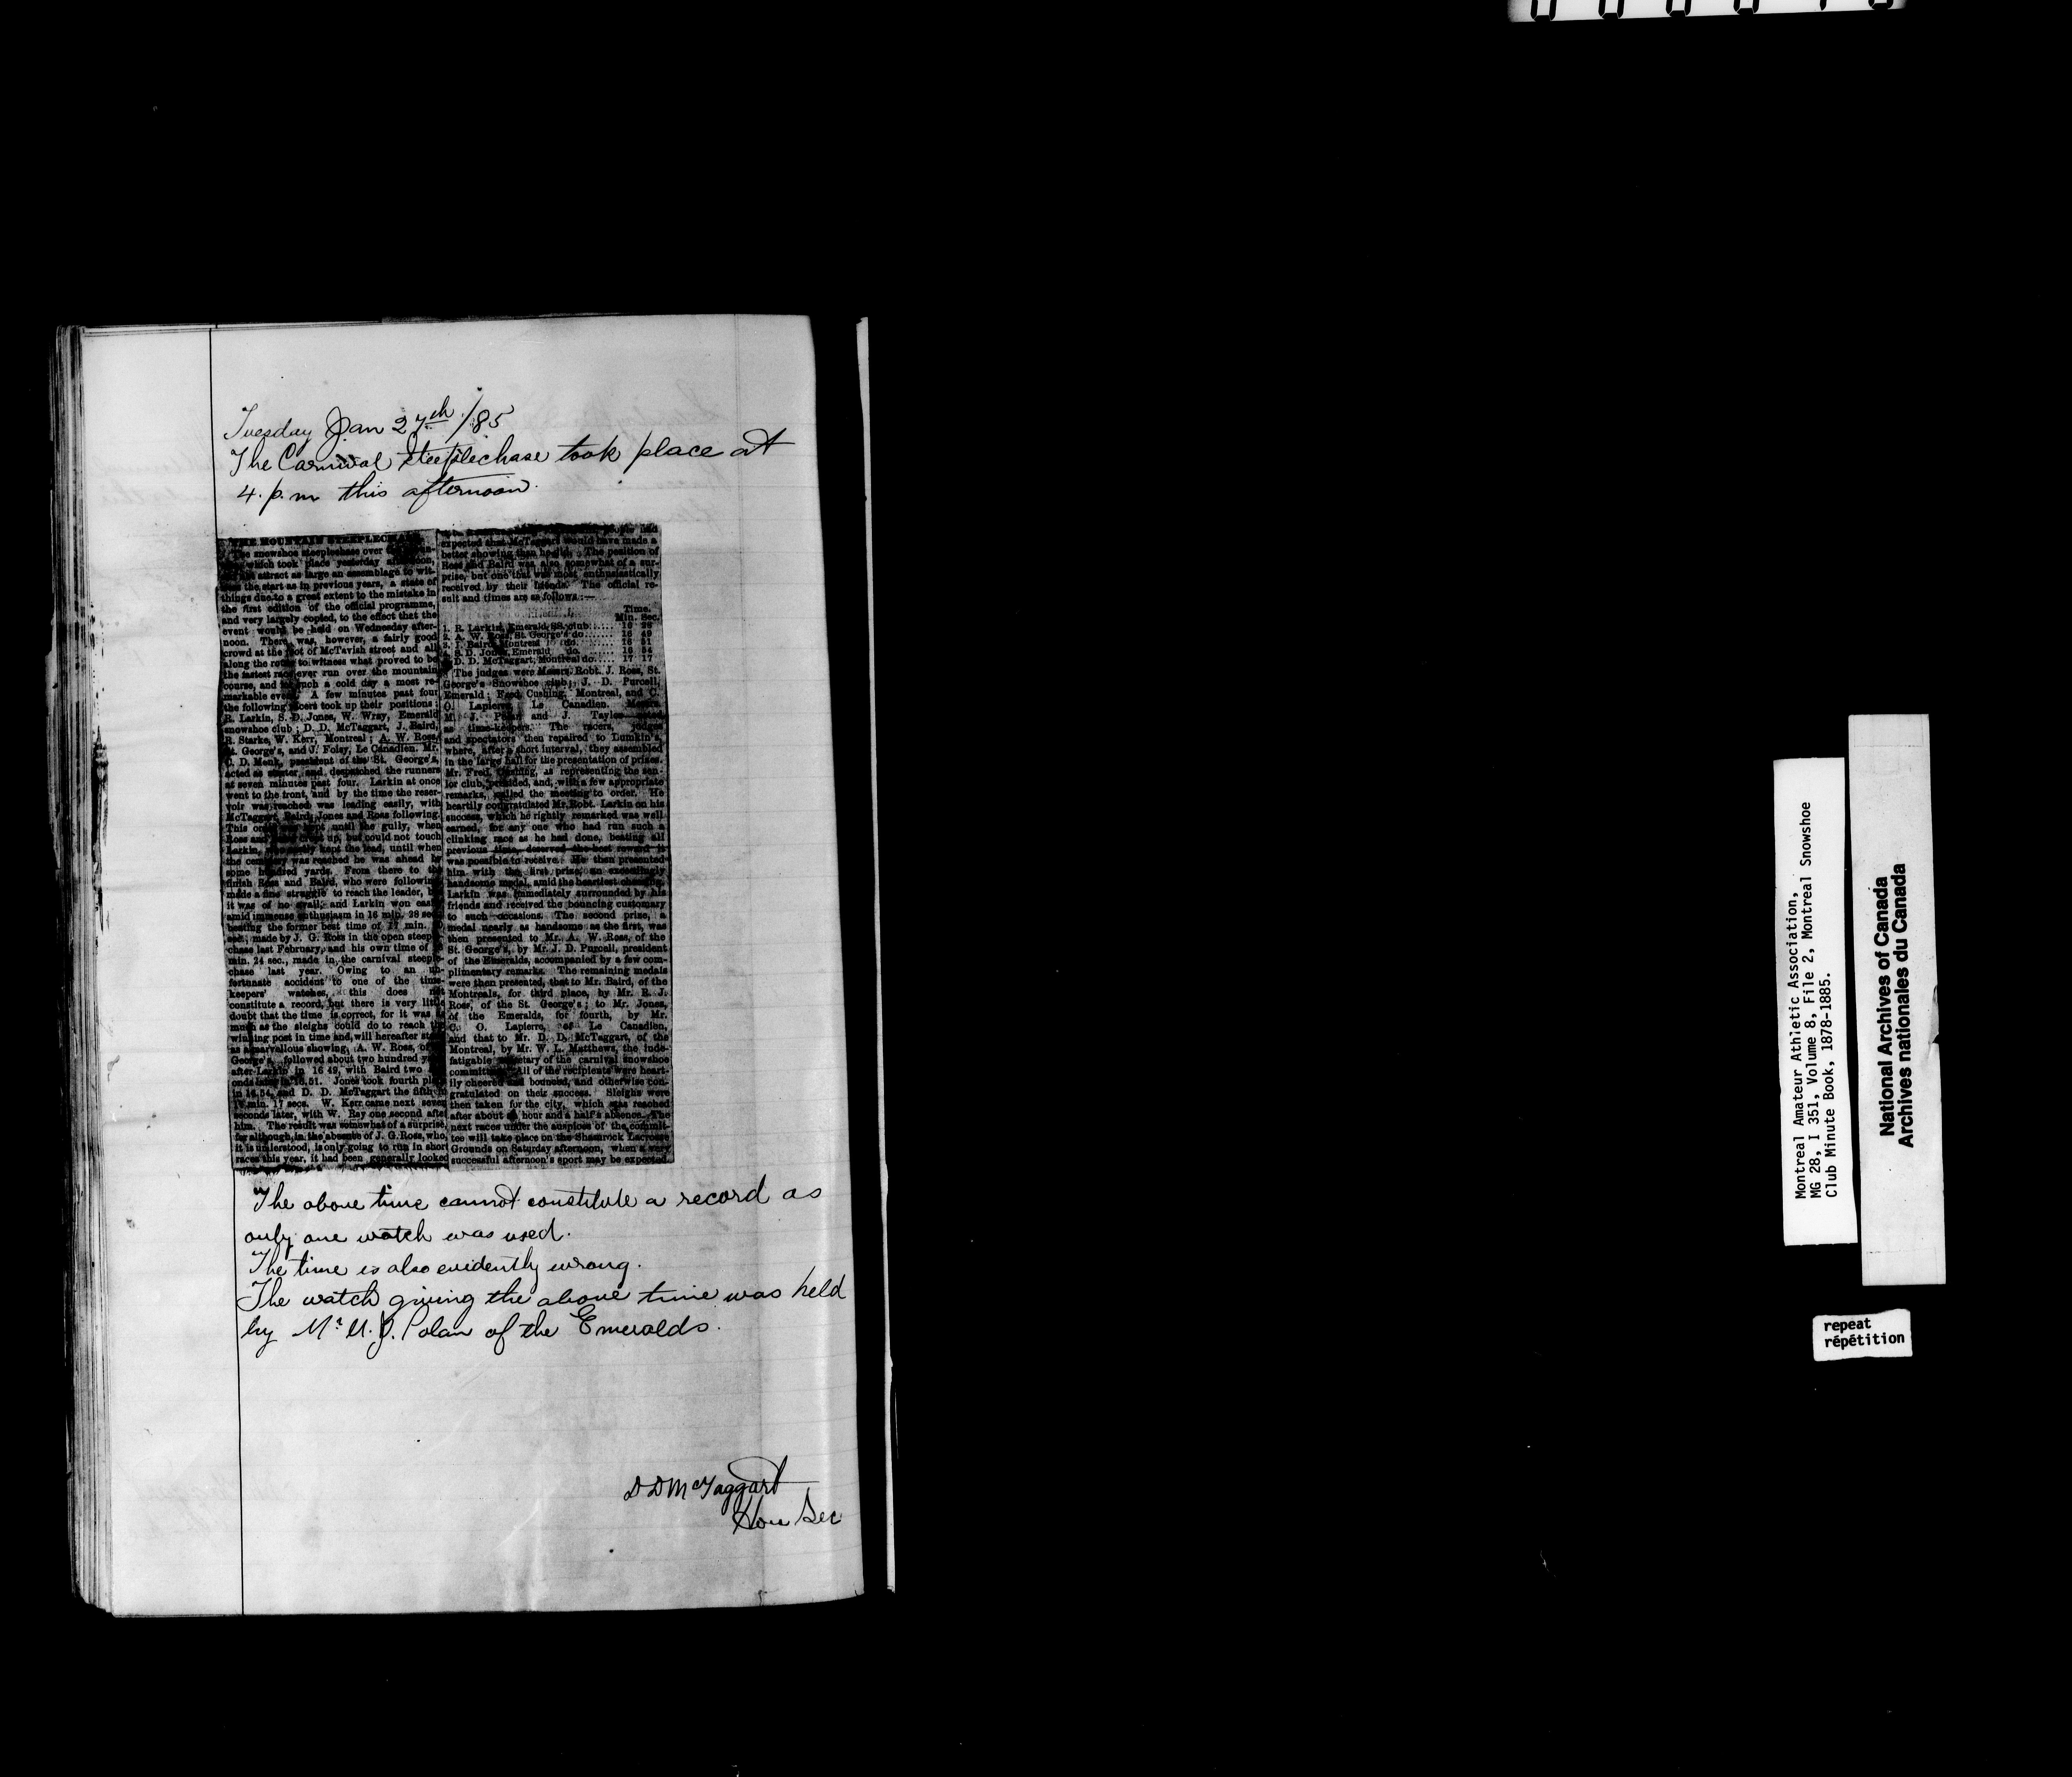 Tuesday Jan 27th /85
The Carnival steeplechase took place at
4. p. m this afternoon.
THE MOUNTAIN STEEPLECHASE
The snowshoe steeplechase over
which took place yesterday
attract as large an assemblage to wit-
the start as in previous years, a state of
things due to a great extent to the mistake in
the first edition of the official programme,
and very largely copied, to the effect that the
event would be held on Wednesday after-
noon. There was, however, a fairly good
crowd at the foot of McTavish street and all
along the route to witness what proved to be
the fastest race ever run over the mountain
course, and for such a cold day a most re-
markable event. A few minutes past four
the following racers took up their positions:
R. Larkin, S. D. Jones, W. Wray, Emerald
snowshoe club; D. D. McTaggart, J. Baird,
R. Starke, W. Kerr, Montreal; A. W. Ross,
St. George's, and J. Foisy, Le Canadien. Mr.
C. D. Monk, president of the St. George's,
acted as starter, and despatched the runners
at seven minutes past four. Larkin at once
went to the front, and by the time the reser-
voir was reached was leading easily, with
McTaggart, Baird, Jones and Ross following.
This order was kept until the gully, when
Ross and up, but could not touch
Larkin, kept the lead, until when
the cemetery was reached he was ahead by
some hundred yards. From there to the
finish Ross and Baird, who were following,
made a fine struggle to reach the leader,
it was of no avail, and Larkin won easily
amid immense enthusiasm in 16 min. 28 sec.,
beating the former best time of 17 min.
sec., made by J. G. Ross in the open steeple-
chase last February, and his own time of
min. 24 sec., made in the carnival steeple-
chase last year. Owing to an un-
fortunate accident to one of the time-
keepers' watches, this does not
constitute a record, but there is very little
doubt that the time is correct, for it was as
much as the sleighs could do to reach the
winning post in time and will hereafter stand
as a marvellous showing. A. W. Ross, of
George's, followed about two hundred yards
after Larkin in 16 49, with Baird two
in 16.51. Jones took fourth place
in 16.54, and D. D. McTaggart the fifth in
17 min. 17 secs. W. Kerr came next seven
seconds later, with W. Ray one second after
him. The result was somewhat of a surprise,
for although, in the absence of J. G. Ross, who,
it is understood, is only going to run in short
races this year, it had been generally looked
expected that McTaggart would have made a
better showing than he did. The position of
Ross and Baird was also somewhat of a sur-
prise, but one that was most enthusiastically
received by their friends. The official re-
sult and times are as follows:—
Time.
Min. Sec.
1. R. Larkin, Emerald SS. club...... 16 28
2. A. W. Ross, St. George's do...... 16 49
3. J. Baird, Montreal do. ...... 16 51
4. S. D. Jones, Emerald do. ...... 16 54
5. D. D. McTaggart, Montreal do.... 17 17
The judges were Messrs. Robt. J. Ross, St.
George's Snowshoe club; J. D. Purcell,
Emerald; Fred. Cushing, Montreal, and C.
O. Lapierre, Le Canadien. Messrs.
M. J. Polan and J. Taylor acted
as time-keepers. The racers, judges
and spectators then repaired to Lumkin's,
where, after a short interval, they assembled
in the large hall for the presentation of prizes.
Mr. Fred. Cushing, as representing the sen-
ior club, presided, and, with a few appropriate
remarks, called the meeting to order. He
heartily congratulated Mr. Robt. Larkin on his
success, which he rightly remarked was well
earned, for any one who had run such a
clinking race as he had done, beating all
previous time, deserved the best reward it
was possible to receive. He then presented
him with the first prize, an exceedingly
handsome medal, amid the heartiest cheering.
Larkin was immediately surrounded by his
friends and received the bouncing customary
to such occasions. The second prize, a
medal nearly as handsome as the first, was
then presented to Mr. A. W. Ross, of the
St. George's, by Mr. J. D. Purcell, president
of the Emeralds, accompanied by a few com-
plimentary remarks. The remaining medals
were then presented, that to Mr. Baird, of the
Montreals, for third place, by Mr. R. J.
Ross, of the St. George's; to Mr. Jones,
of the Emeralds, for fourth, by Mr.
C. O. Lapierre, of Le Canadien,
and that to Mr. D. D. McTaggart, of the
Montreal, by Mr. W. L. Matthews, the inde-
fatigable secretary of the carnival snowshoe
committee. All of the recipients were heart-
ily cheered and bounced, and otherwise con-
gratulated on their success. Sleighs were
then taken for the city, which was reached
after about an hour and a half's absence. The
next races under the auspices of the commit-
tee will take place on the Shamrock Lacrosse
Grounds on Saturday afternoon, when a very
successful afternoon's sport may be expected.
The above time cannot constitute a record as
only one watch was used.
The time is also evidently wrong.
The watch giving the above time was held
by Mr. M. J. Polan of the Emeralds.
D D McTaggart
Hon Sec
Montreal Amateur Athletic Association,
MG 28, I 351, Volume 8, File 2, Montreal Snowshoe
Club Minute Book, 1878-1885.
National Archives of Canada
Archives nationales du Canada
repeat
répétition